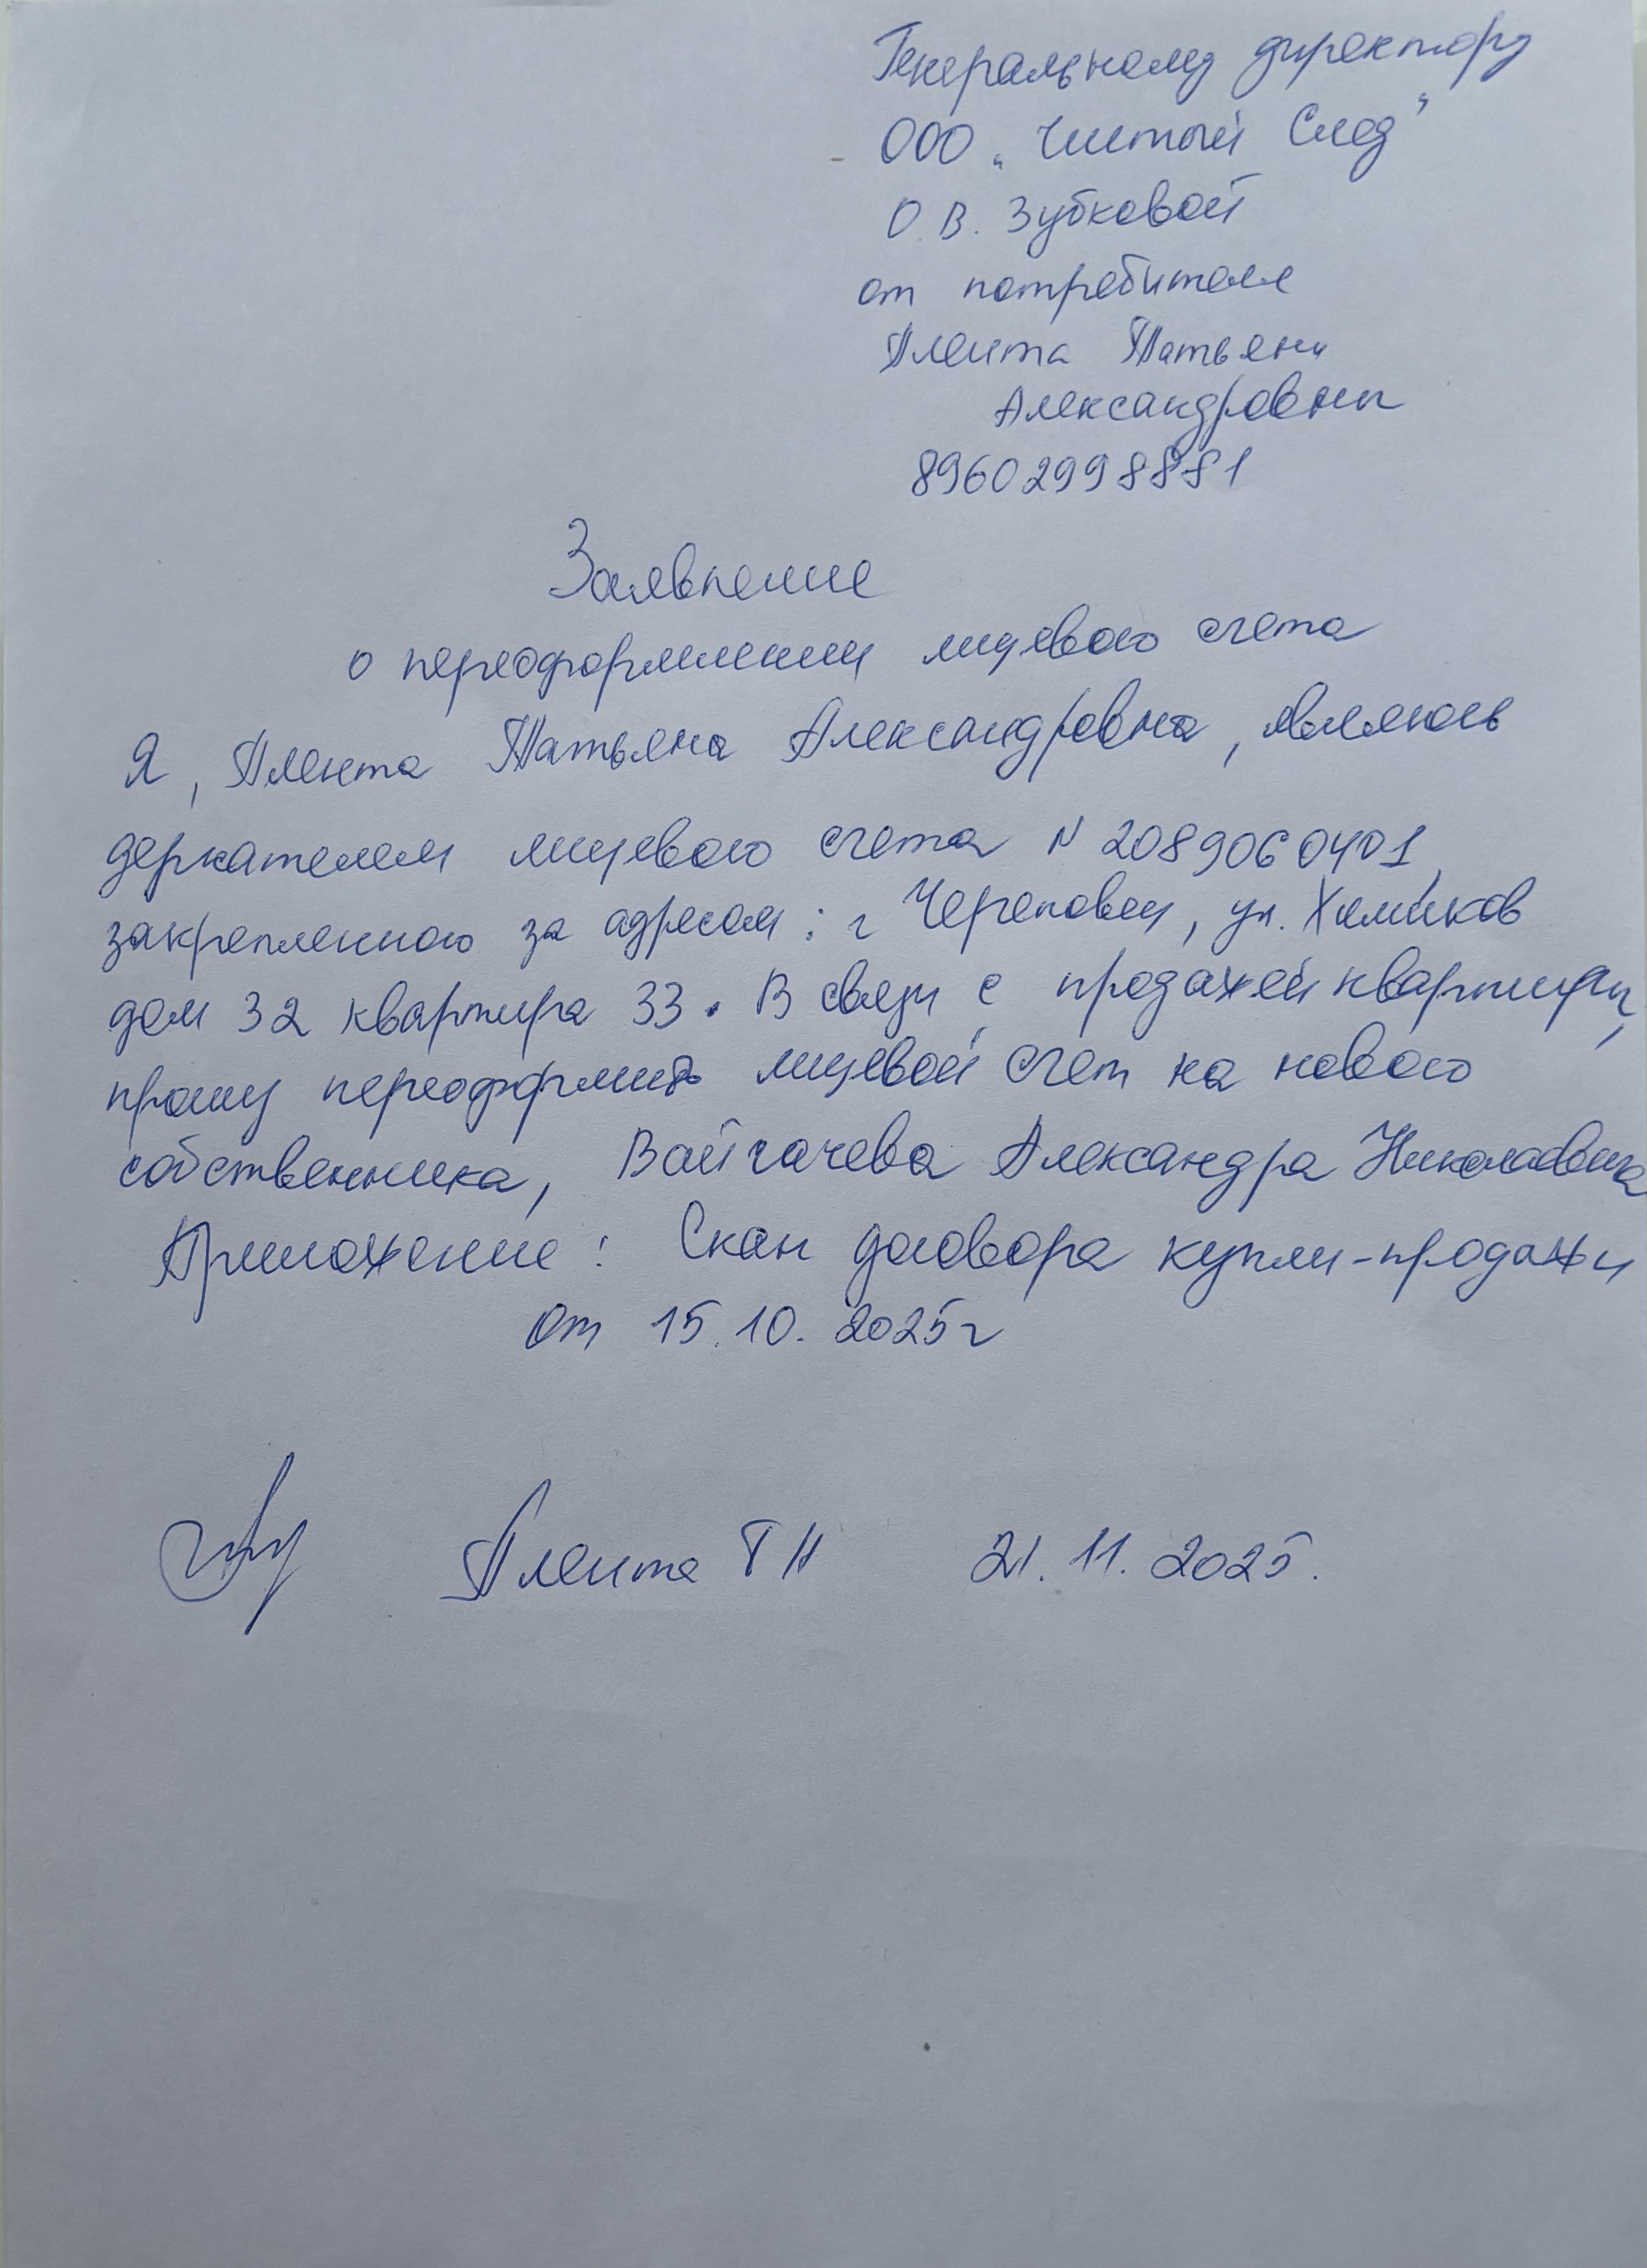 Генеральному директору
ООО „Чистый След"
О.В. Зубковой
от потребителя
Плента Татьяны
Александровны
89602998881
Заявление
о переоформлении лицевого счета
Я, Плента Татьяна Александровна, являюсь
держателем лицевого счета N 2089060401,
закрепленного за адресом: г Череповец, ул. Химиков
дом 32 квартира 33. В связи с продажей квартиры,
прошу переоформить лицевой счет на нового
собственника, Вайгачева Александра Николаевича
Приложение: Скан договора купли-продажи
от 15.10.2025г
Плента Т А 21.11.2025.